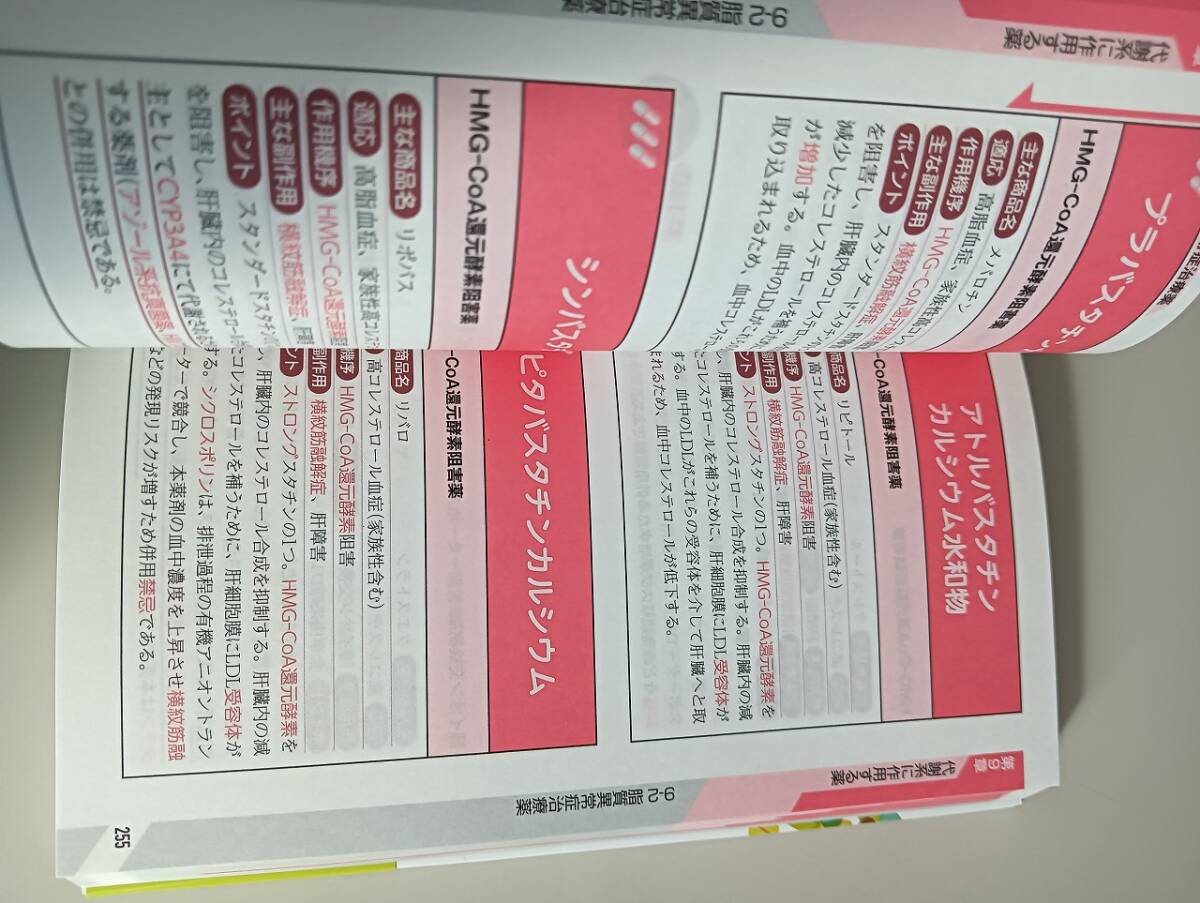 9-2
脂質異常症治療薬
代謝系に作用する薬
症治療薬
プラバスタチン
HMG-CoA還元酵素阻害薬
主な商品名 メバロチン
適応 高脂血症、家族性高コレ
作用機序 HMG-CoA還元酵素
主な副作用 横紋筋融解症、
ポイント スタンダードスタチン
を阻害し、肝臓内のコレステロー
減少したコレステロールを補う
が増加する。血中のLDLがこれら
取り込まれるため、血中コレステロ
シンバスタ
HMG-CoA還元酵素阻害薬
主な商品名 リポバス
適応 高脂血症、家族性高コレステ
作用機序 HMG-CoA還元酵素阻
主な副作用 横紋筋融解症、肝障
ポイント スタンダードスタチンの
を阻害し、肝臓内のコレステロール
主としてCYP3A4にて代謝される
する薬剤(アゾール系抗真菌薬、H
との併用は禁忌である。
アトルバスタチン
カルシウム水和物
-CoA還元酵素阻害薬
商品名 リピトール
高コレステロール血症(家族性含む)
機序 HMG-CoA還元酵素阻害
副作用 横紋筋融解症、肝障害
ント ストロングスタチンの1つ。HMG-CoA還元酵素を
し、肝臓内のコレステロール合成を抑制する。肝臓内の減
たコレステロールを補うために、肝細胞膜にLDL受容体が
する。血中のLDLがこれらの受容体を介して肝臓へと取
まれるため、血中コレステロールが低下する。
ピタバスタチンカルシウム
-CoA還元酵素阻害薬
商品名 リバロ
高コレステロール血症(家族性含む)
機序 HMG-CoA還元酵素阻害
副作用 横紋筋融解症、肝障害
ント ストロングスタチンの1つ。HMG-CoA還元酵素を
し、肝臓内のコレステロール合成を抑制する。肝臓内の減
たコレステロールを補うために、肝細胞膜にLDL受容体が
する。シクロスポリンは、排泄過程の有機アニオントラン
ーターで競合し、本薬剤の血中濃度を上昇させ横紋筋融
などの発現リスクが増すため併用禁忌である。
第9章
代謝系に作用する薬
9-2
脂質異常症治療薬
255